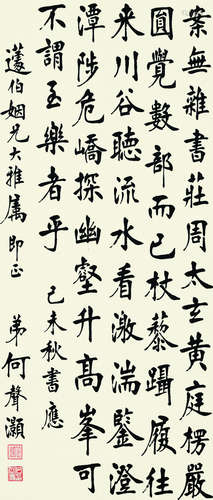 案無雜書莊周太玄黃庭楞嚴
圓覺數部而已杖藜躡履往
来川谷聽流水看激湍鑒澄
潭陟危嶠探幽壑升高峯可
不謂至樂者乎 己未秋書應
蘧伯姻兄大雅属 即正
弟何聲灝